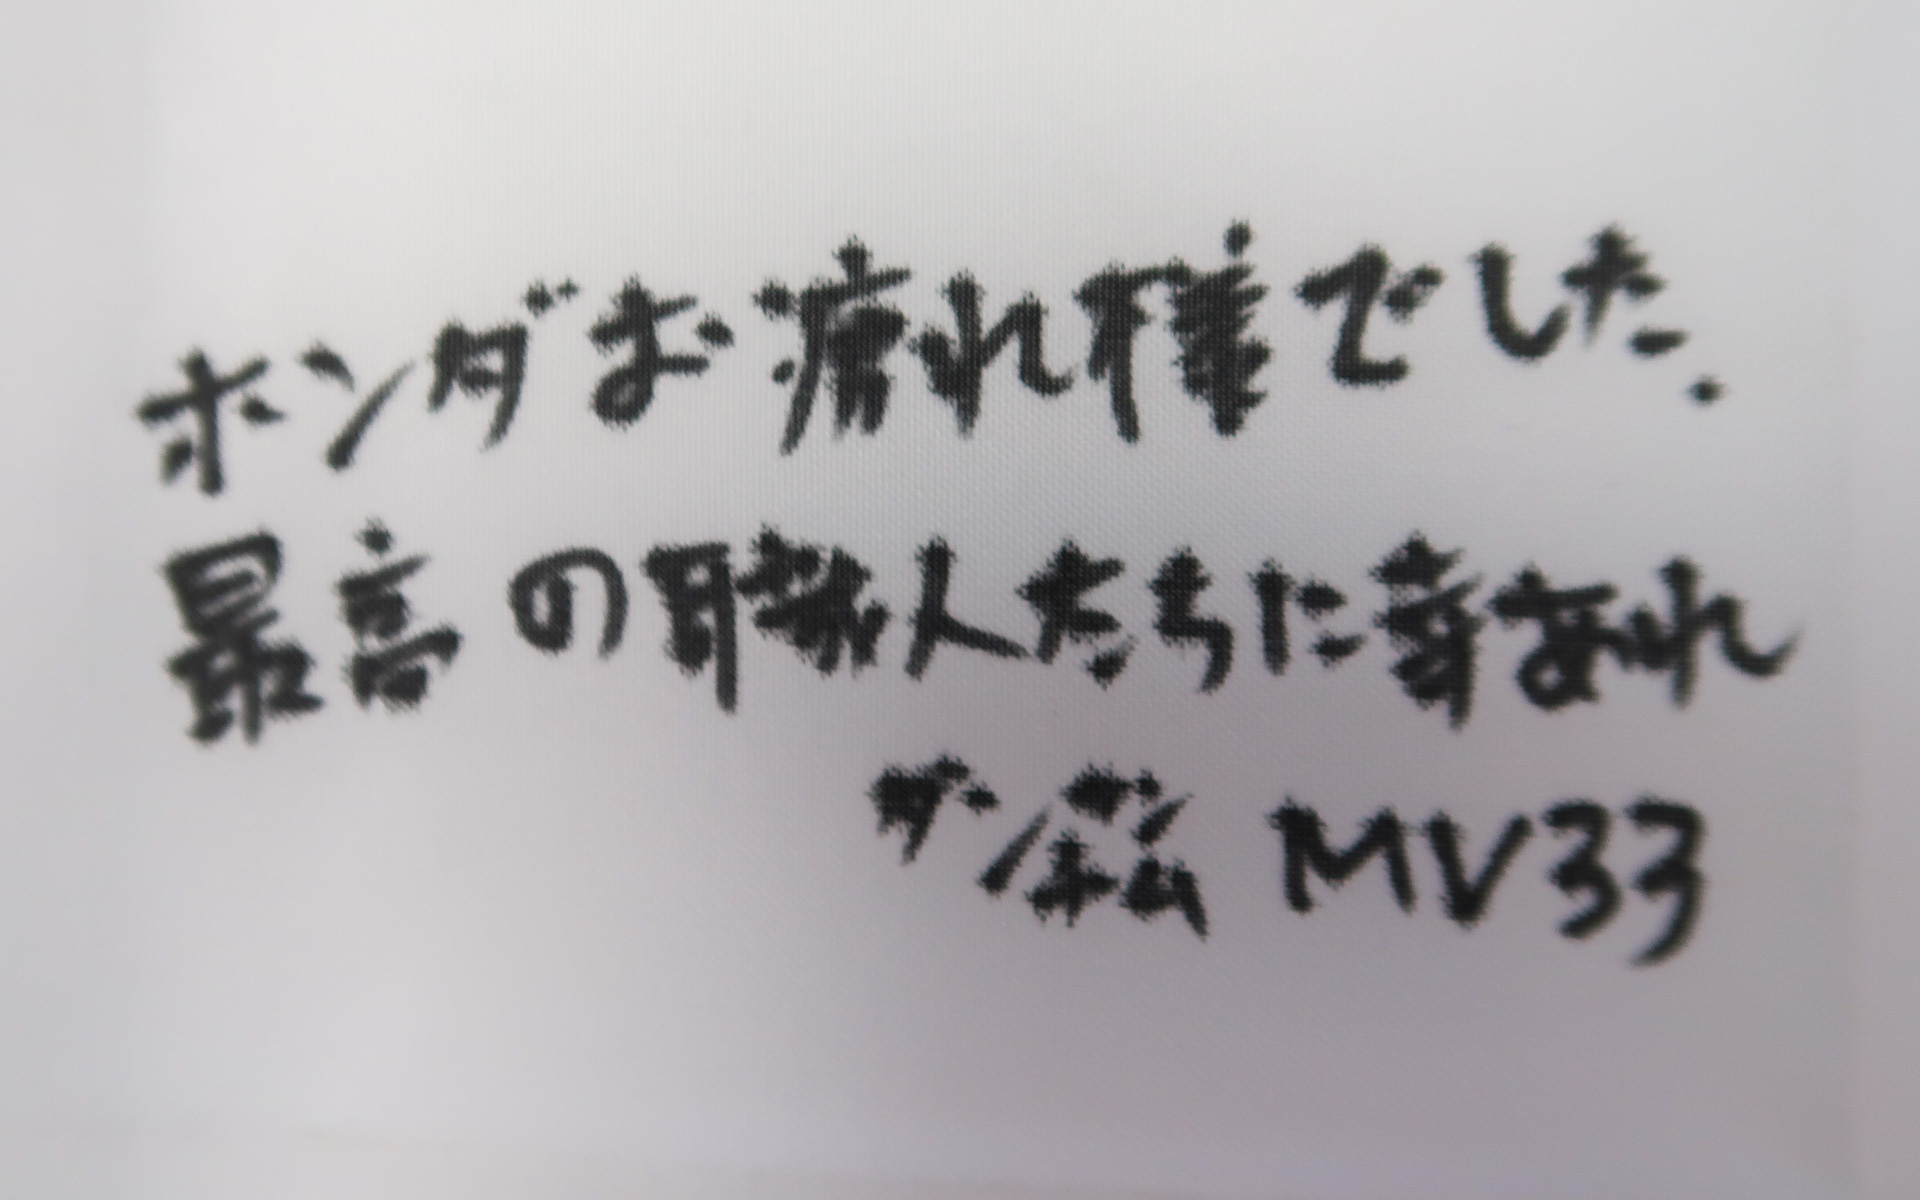 ホンダお疲れ様でした.
最高の職人たちに幸あれ
MV33